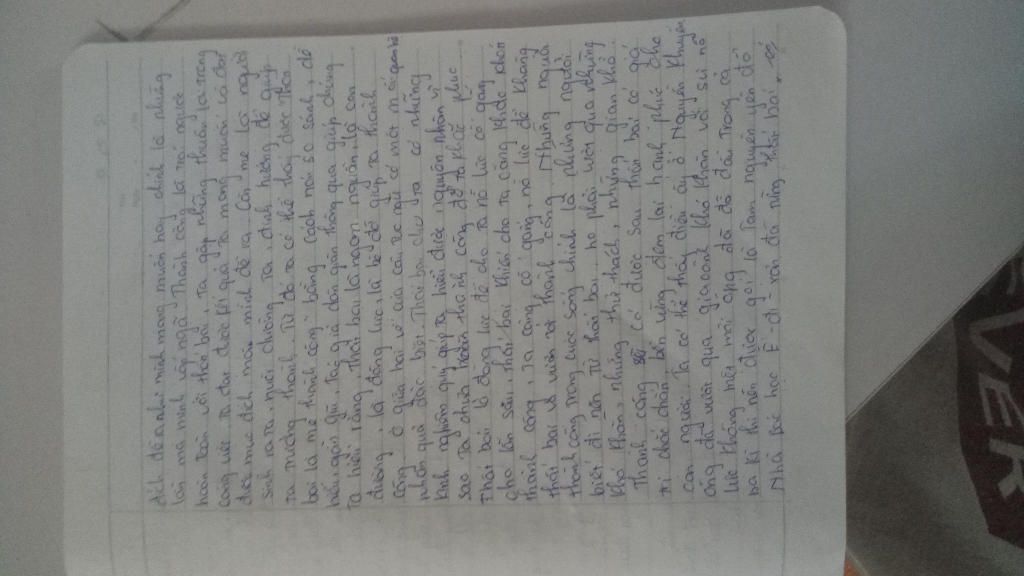 đích đề ra như mình mong muốn hay chính là những
lần mà mình vấp ngã. Thành công là trái ngược
hoàn toàn với thất bại, ta gặp những thuận lợi trong
công việc, ta đạt được kết quả ta mong muốn và đạt
được mục đích mà mình đề ra. Còn mẹ là người
sinh ra ta, nuôi dưỡng ta, định hướng để giúp
ta trưởng thành. Từ đó ta có thể thấy được thất
bại là mẹ thành công bằng cách nói so sánh, dễ
hiểu, gần gũi, tác giả dân gian thông qua giúp chúng
ta hiểu rằng thất bại là ngọn nguồn, là con
đường, là động lực, là bệ đỡ để giúp ta thành
công. Ở giữa hai vế của câu tục ngữ có một mối quan hệ
nhân quả đặc biệt. Thất bại cho ta có những
kinh nghiệm quý, giúp ta hiểu được nguyên nhân vì
sao ta chưa thành công để ta khắc phục
Thất bại là động lực để cho ta nỗ lực cố gắng
cho lần sau, thất bại khiến cho ta càng khát khao
thành công, ta càng cố gắng, nỗ lực để không
thất bại và vươn tới thành công. Những người
thành công trong cuộc sống chính là những người
biết đi lên từ thất bại, họ phải vượt qua những
khó khăn, những thử thách, những gian khổ.
Thành công có được sau thất bại có giá
trị chắc chắn, bền vững, đem lại hạnh phúc cho
con người. Ta có thể thấy điều ấy ở Nguyễn Khuyến
ông đã vượt qua gia cảnh khó khăn với sự nỗ
lực không mệt mỏi ông đã đỗ đầu trong cả
ba kì thi nên được gọi là Tam nguyên yên đổ
Nhà bác học Ê-đi-xơn đã từng thất bại
VER